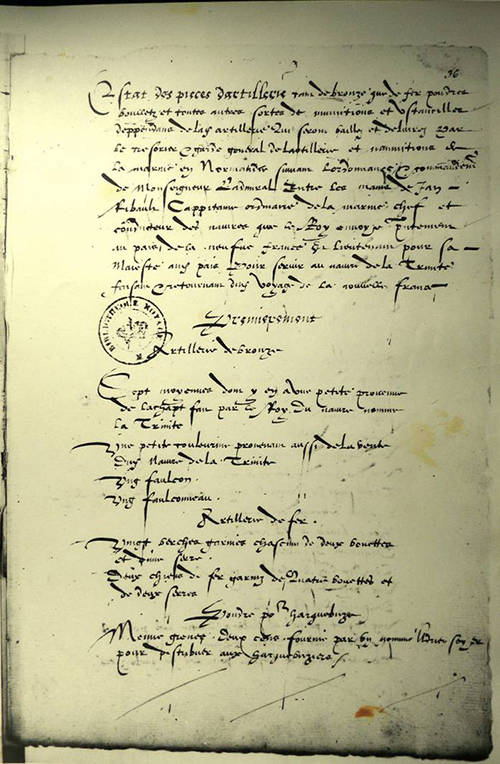 96
Estat des pieces dartillerie tant de bronze que de fer pouldres
boullets et toutes autres sortes de munitions et ustancilles
deppendans de lad artillerie qui seront baillez et delivrez par
le tresorier et garde general de lartillerie et munitions de
la marine en Normandie suivant lordonnance et commandement
de Monseigneur Ladmiral entre les mains de Jan
Ribault cappitaine ordinaire de la marine chef et
conducteur des navires que le Roy envoye presentement
au pais de la neufve France et Lieutenant pour sa
Maieste aud pais pour servir au navire de la Trinite
faisant et retournant dud voyage de la nouvelle France
Premierement
BIBLIOTHEQUE
Artillerie de bronze
Sept moyennes dont y en a une petite provenue
de lachapt fait par le Roy du navire nomme
la Trinite
Une petite couleuvrine provenant aussi de la vente
dud navire de la Trinite
Ung faulcon
Ung faulconneau
Artillerie de fer
Vingt berches garnies chascune de deux bouettes
et dune serre
Deux chiens de fer garniz de quatre bouettes et
de deux serres
Pouldre por harquebuze
Menue grenee deux cens fournie par un nomme
pour distribuer aux harquebuziers